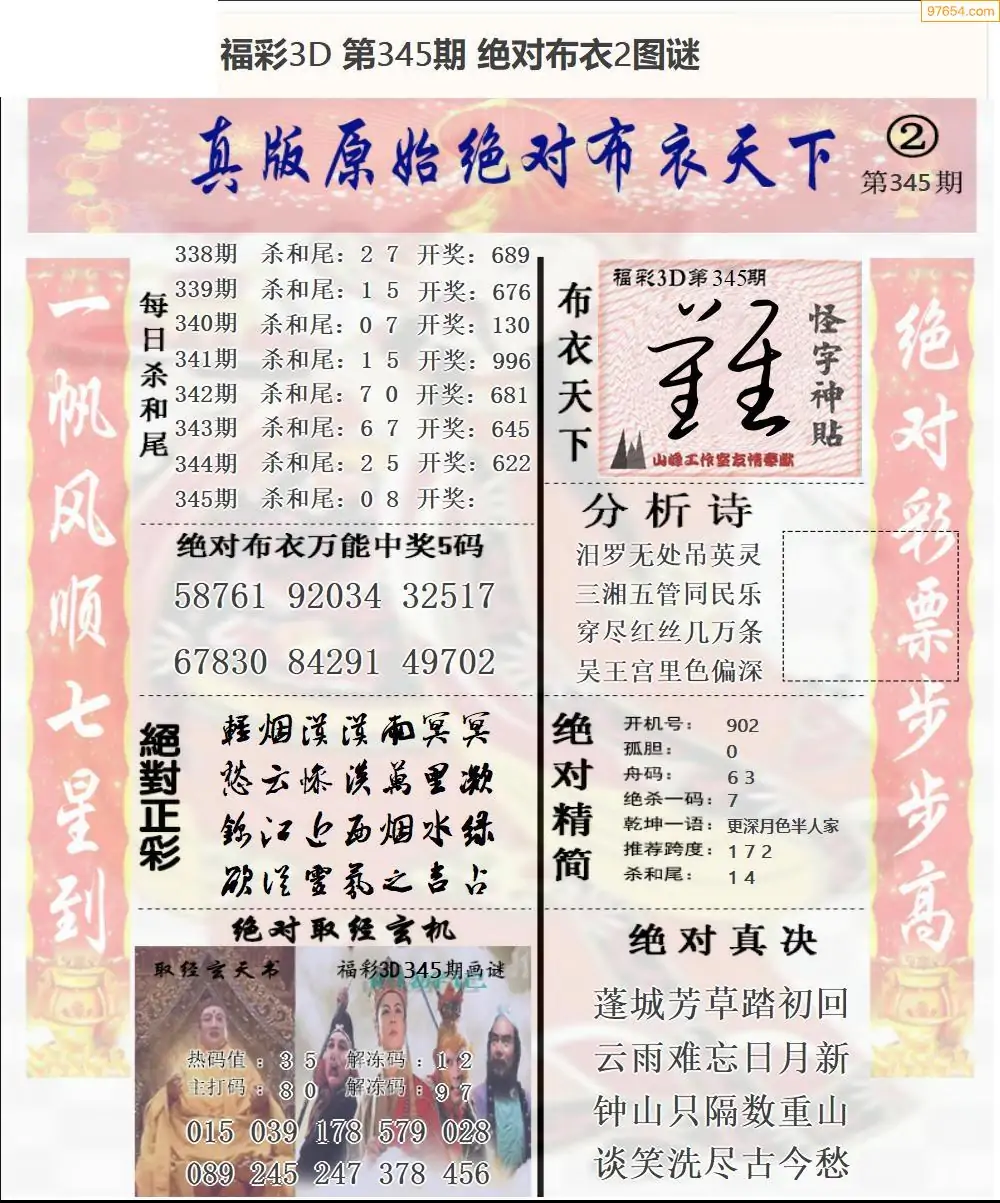 97654.com
福彩3D 第345期 绝对布衣2图谜
真版原始绝对布衣天下
②
第345期
一帆风顺七星到
每日杀和尾
338期 杀和尾：2 7 开奖：689
339期 杀和尾：1 5 开奖：676
340期 杀和尾：0 7 开奖：130
341期 杀和尾：1 5 开奖：996
342期 杀和尾：7 0 开奖：681
343期 杀和尾：6 7 开奖：645
344期 杀和尾：2 5 开奖：622
345期 杀和尾：0 8 开奖：
绝对布衣万能中奖5码
58761 92034 32517
67830 84291 49702
絕對正彩
輕烟漠漠雨冥冥
愁云惨淡萬里凝
錦江近西烟水绿
欲從靈氛之吉占
绝对取经玄机
取经玄天书
福彩3D345期画谜
热码值：3 5 解冻码：1 2
主打码：8 0 解冻码：9 7
015 039 178 579 028
089 245 247 378 456
布衣天下
福彩3D第345期
難
怪字神貼
山峰工作室友情奉献
分析诗
汨罗无处吊英灵
三湘五管同民乐
穿尽红丝几万条
吴王宫里色偏深
绝对精简
开机号： 902
孤胆： 0
舟码： 6 3
绝杀一码：7
乾坤一语：更深月色半人家
推荐跨度：1 7 2
杀和尾： 1 4
绝对真决
蓬城芳草踏初回
云雨难忘日月新
钟山只隔数重山
谈笑洗尽古今愁
绝对彩票步步高